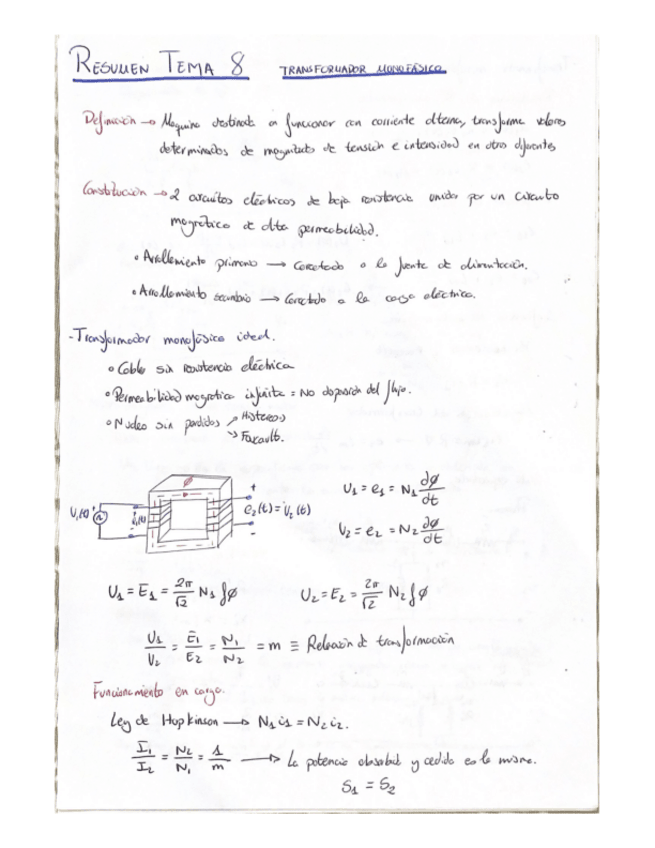 RESUMEN TEMA 8 TRANSFORMADOR MONOFÁSICO
Definición → Maquina destinada a funcionar con corriente alterna, transforma valores
determinados de magnitudes de tensión e intensidad en otros diferentes
Constitución → 2 circuitos eléctricos de baja resistencia unidos por un circuito
magnético de alta permeabilidad.
• Arrollamiento primario → Conectado a la fuente de alimentación.
• Arrollamiento secundario → Conectado a la carga eléctrica.
- Transformador monofásico ideal.
• Cable sin resistencia eléctrica
• Permeabilidad magnética infinita = No dispersión del flujo.
• Nucleo sin perdidas ↗ Histéresis
↘ Foucault.
ϕ
U₁(t) i₁(t) + e₂(t) = U₂(t) -
U₁ = e₁ = N₁ dϕ/dt
U₂ = e₂ = N₂ dϕ/dt
U₁ = E₁ = 2π/√2 N₁ f ϕ U₂ = E₂ = 2π/√2 N₂ f ϕ
U₁/U₂ = E₁/E₂ = N₁/N₂ = m ≡ Relación de transformación
Funcionamiento en carga.
Ley de Hopkinson → N₁ i₁ = N₂ i₂.
I₁/I₂ = N₂/N₁ = 1/m → La potencia absorbida y cedida es la misma.
S₁ = S₂